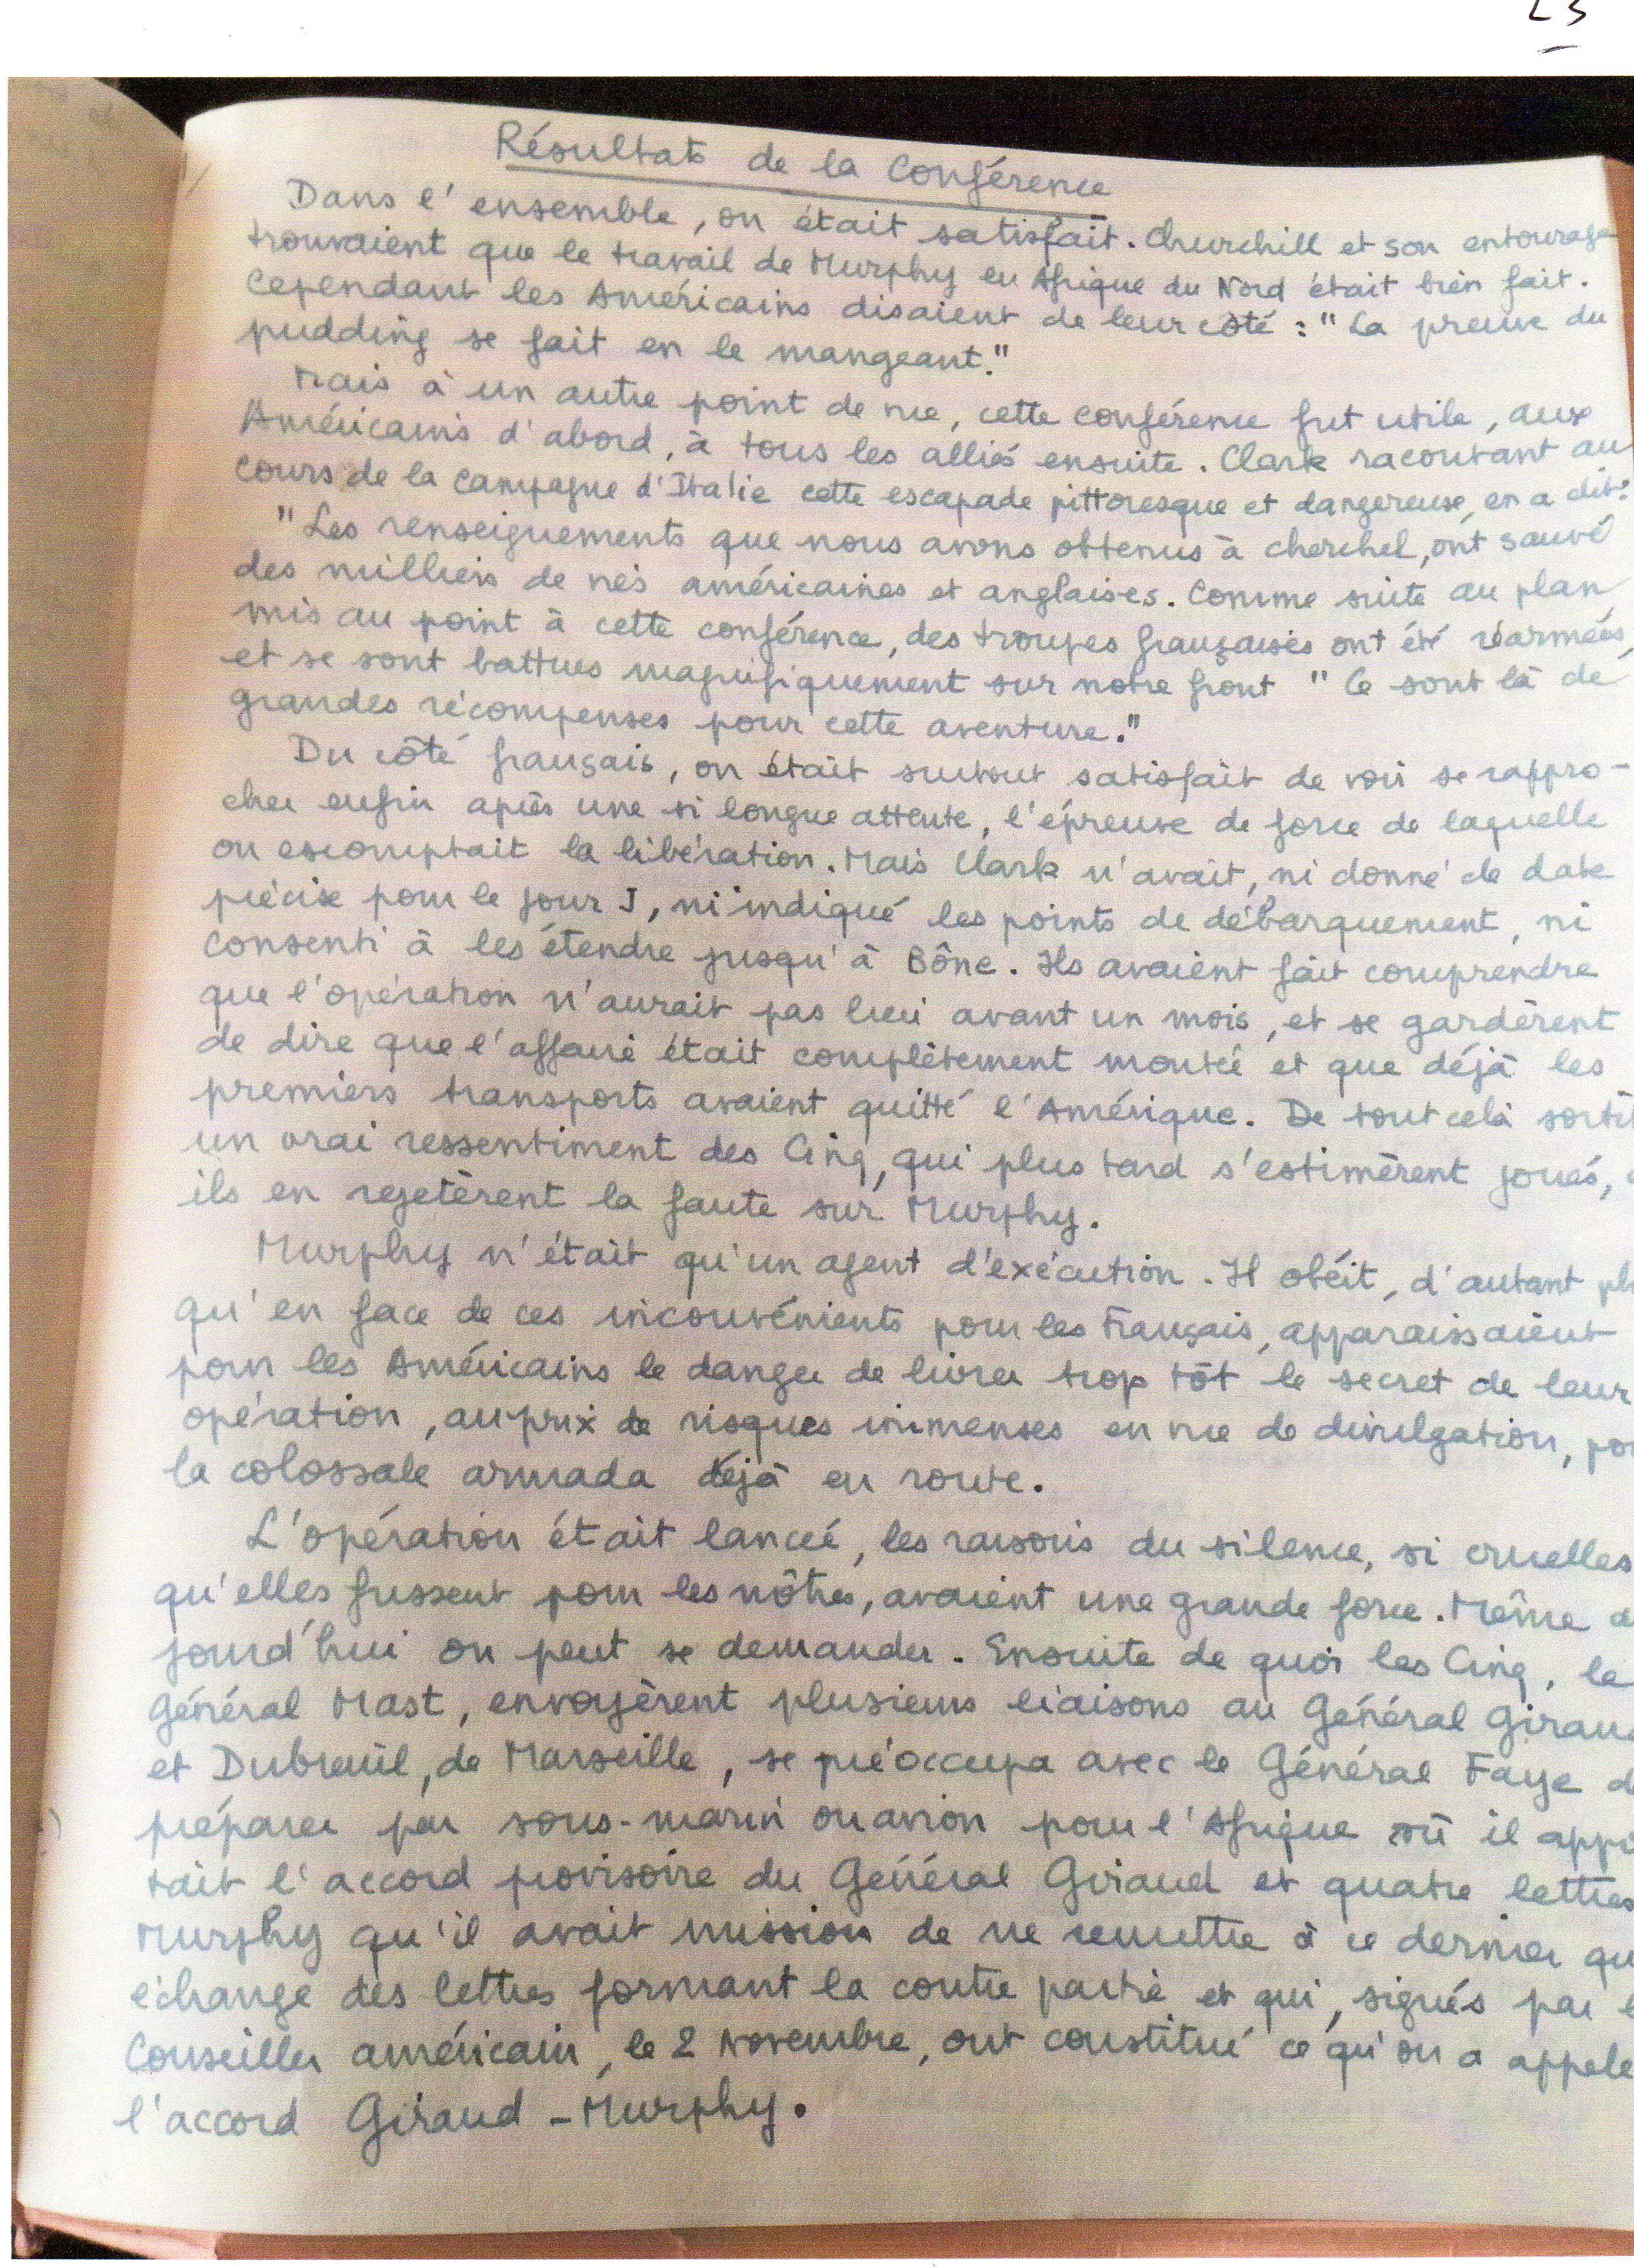 23
Résultats de la Conférence
Dans l'ensemble, on était satisfait. Churchill et son entourage
trouvaient que le travail de Murphy en Afrique du Nord était bien fait.
Cependant les Américains disaient de leur côté : "La preuve du
pudding se fait en le mangeant."
Mais à un autre point de vue, cette conférence fut utile, aux
Américains d'abord, à tous les alliés ensuite. Clark racontant au
cours de la campagne d'Italie cette escapade pittoresque et dangereuse, en a dit :
"Les renseignements que nous avons obtenus à cherchel, ont sauvé
des milliers de vies américaines et anglaises. Comme suite au plan
mis au point à cette conférence, des troupes françaises ont été réarmées,
et se sont battues magnifiquement sur notre front " Ce sont là de
grandes récompenses pour cette aventure."
Du côté français, on était surtout satisfait de voir se rappro-
cher enfin après une si longue attente, l'épreuve de force de laquelle
on escomptait la libération. Mais Clark n'avait, ni donné de date
précise pour le jour J, ni indiqué les points de débarquement, ni
consenti à les étendre jusqu'à Bône. Ils avaient fait comprendre
que l'opération n'aurait pas lieu avant un mois, et se gardèrent
de dire que l'affaire était complètement montée et que déjà les
premiers transports avaient quitté l'Amérique. De tout celà sortit
un vrai ressentiment des Cinq, qui plus tard s'estimèrent joués,
ils en rejetèrent la faute sur Murphy.
Murphy n'était qu'un agent d'exécution. Il obéit, d'autant pl
qu'en face de ces inconvénients pour les Français, apparaissaient
pour les Américains le danger de livrer trop tôt le secret de leur
opération, au prix de risques immenses en vue de divulgation, po
la colossale armada déjà en route.
L'opération était lancée, les raisons du silence, si cruelles
qu'elles fussent pour les nôtres, avaient une grande force. Même a
jourd'hui on peut se demander. Ensuite de quoi les Cinq, le
Général Mast, envoyèrent plusieurs liaisons au Général Girau
et Dubreuil, de Marseille, se préoccupa avec le Général Faye d
préparer par sous-marin ou avion pour l'Afrique où il appo
tait l'accord provisoire du Général Giraud et quatre lettres
Murphy qu'il avait mission de ne remettre à ce dernier qu
échange des lettres formant la contre partie et qui, signés par l
Conseiller américain, le 2 Novembre, ont constitué ce qu'on a appelé
l'accord Giraud - Murphy.